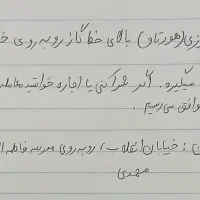 زی(هورتاو) بالای خط گاز روبه روی خ
میگیره. اگر شراکتی یا اجاره خواستید معامله
توافق می رسیم.
ن: خیابان انقلاب، روبه روی مدرسه فاطمه ال
مهدی